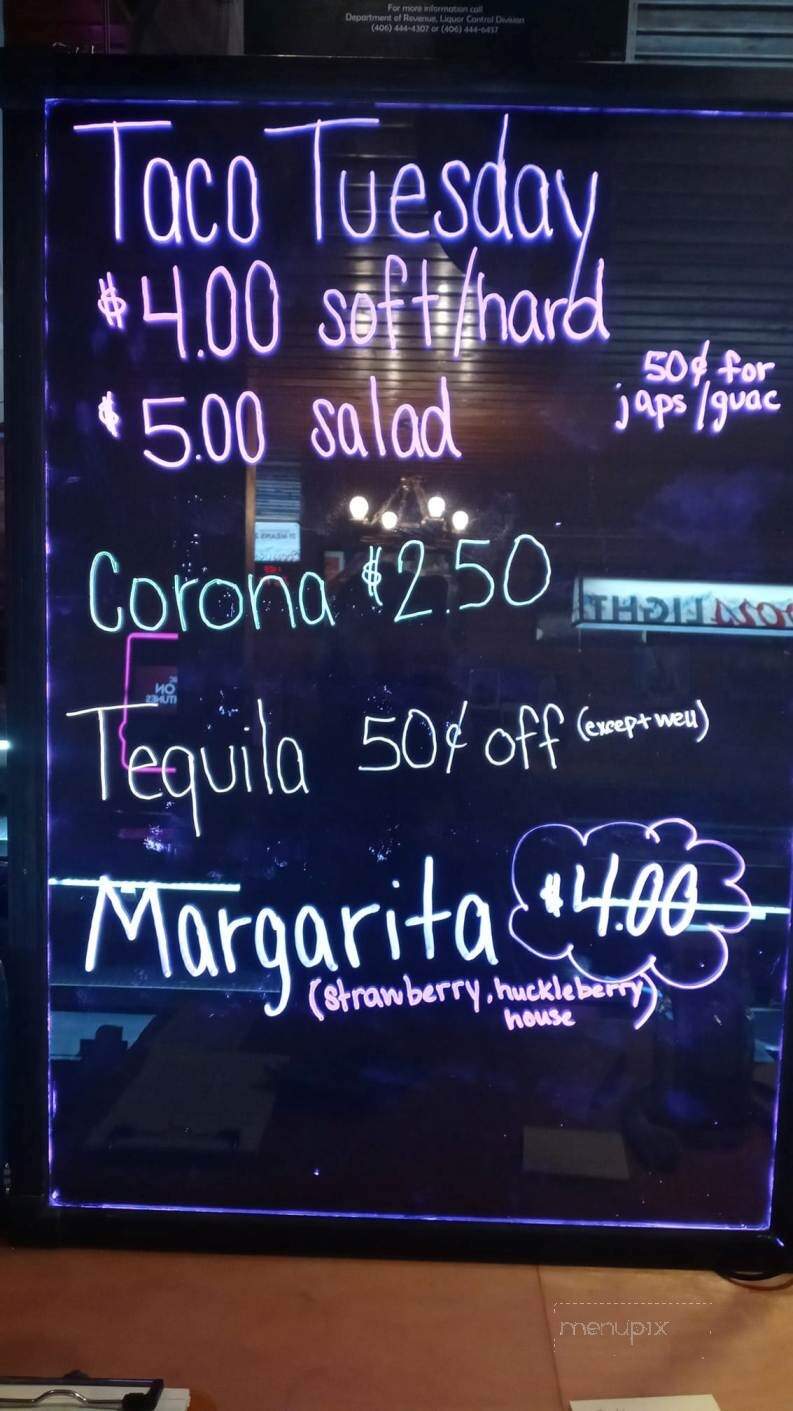 For more information call
Department of Revenue, Liquor Control Division
(406) 444-4307 or (406) 444-6457
Taco Tuesday
$4.00 soft/hard
50¢ for
japs/guac
$5.00 salad
Corona $2.50
COORS LIGHT
Tequila 50¢ off (except well)
Margarita $4.00
(strawberry, huckleberry
house)
menupix